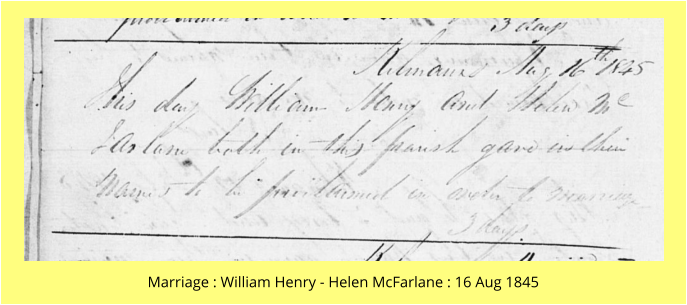 3 days
Kilmaurs Aug 16th 1845
This day William Henry and Helen Mc
Farlane both in this parish gave in their
names to be proclaimed in order to marriage
3 days.
Marriage : William Henry - Helen McFarlane : 16 Aug 1845